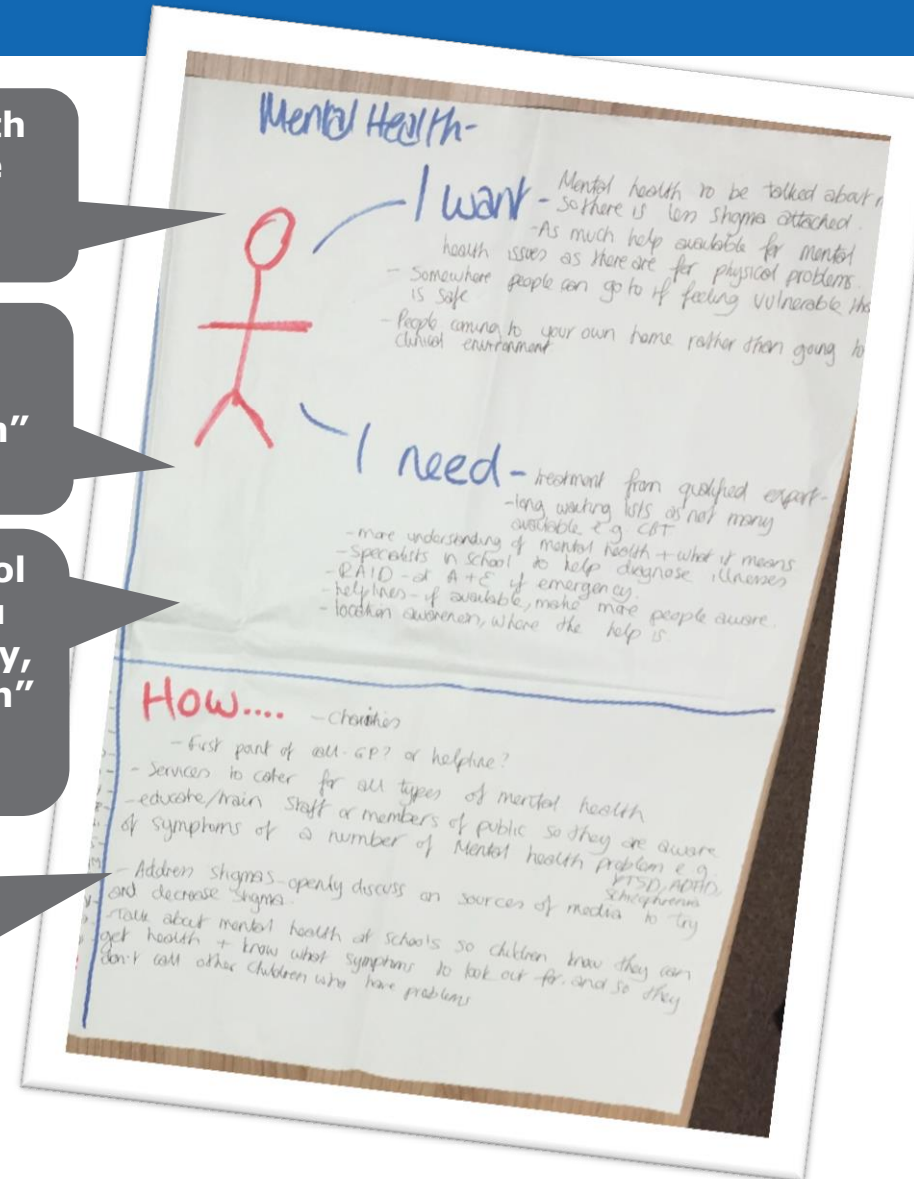 th
e
n"
ol
l
y,
n"
Mental Health-
I want - Mental health to be talked about
so there is less stigma attached.
-As much help available for mental
health issues as there are for physical problems.
- Somewhere people can go to if feeling vulnerable tha
is safe
- People coming to your own home rather then going to
clinical environment
I need - treatment from qualified expert-
-long waiting lists as not many
available e.g. CBT
-more understanding of mental health + what it means
-Specialists in school to help diagnose illnesses
-RAID-at A+E if emergency.
-helplines-if available, make more people aware.
-location awareness, where the help is.
HOW.... -Charities
-First part of call-GP? or helpline?
- Services to cater for all types of mental health
-educate/train staff or members of public so they are aware
of symptoms of a number of Mental health problem e.g.
PTSD, ADHD,
Schizophrenia
-Address stigmas-openly discuss on sources of media to try
and decrease stigma.
-Talk about mental health at schools so children know they can
get health + know what symptoms to look out for. and so they
don't call other children who have problems